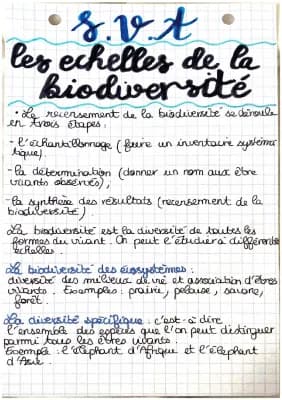 S.V.T
les echelles de la
biodiversité
• Le recensement de la biodiversité se déroule
en trois étapes :
- l'échantillonnage (faire un inventaire systéma
tique).
- la détermination (donner un nom aux être
vivants observés),
- la synthèse des résultats (recensement de la
biodiversité)
La biodiversité est la diversité de toutes les
formes du vivant. On peut l'étudier à différente
échelles.
La biodiversité des écosystèmes :
diversité des milieux de vie et association d'êtres
vivants. Exemples : prairie, pelouse, savane,
forêt.
La diversité spécifique : c'est-à dire
l'ensemble des espèces que l'on peut distinguer
parmi tous les êtres vivants.
Exemple : l'éléphant d'Afrique et l'éléphant
d'Asie.